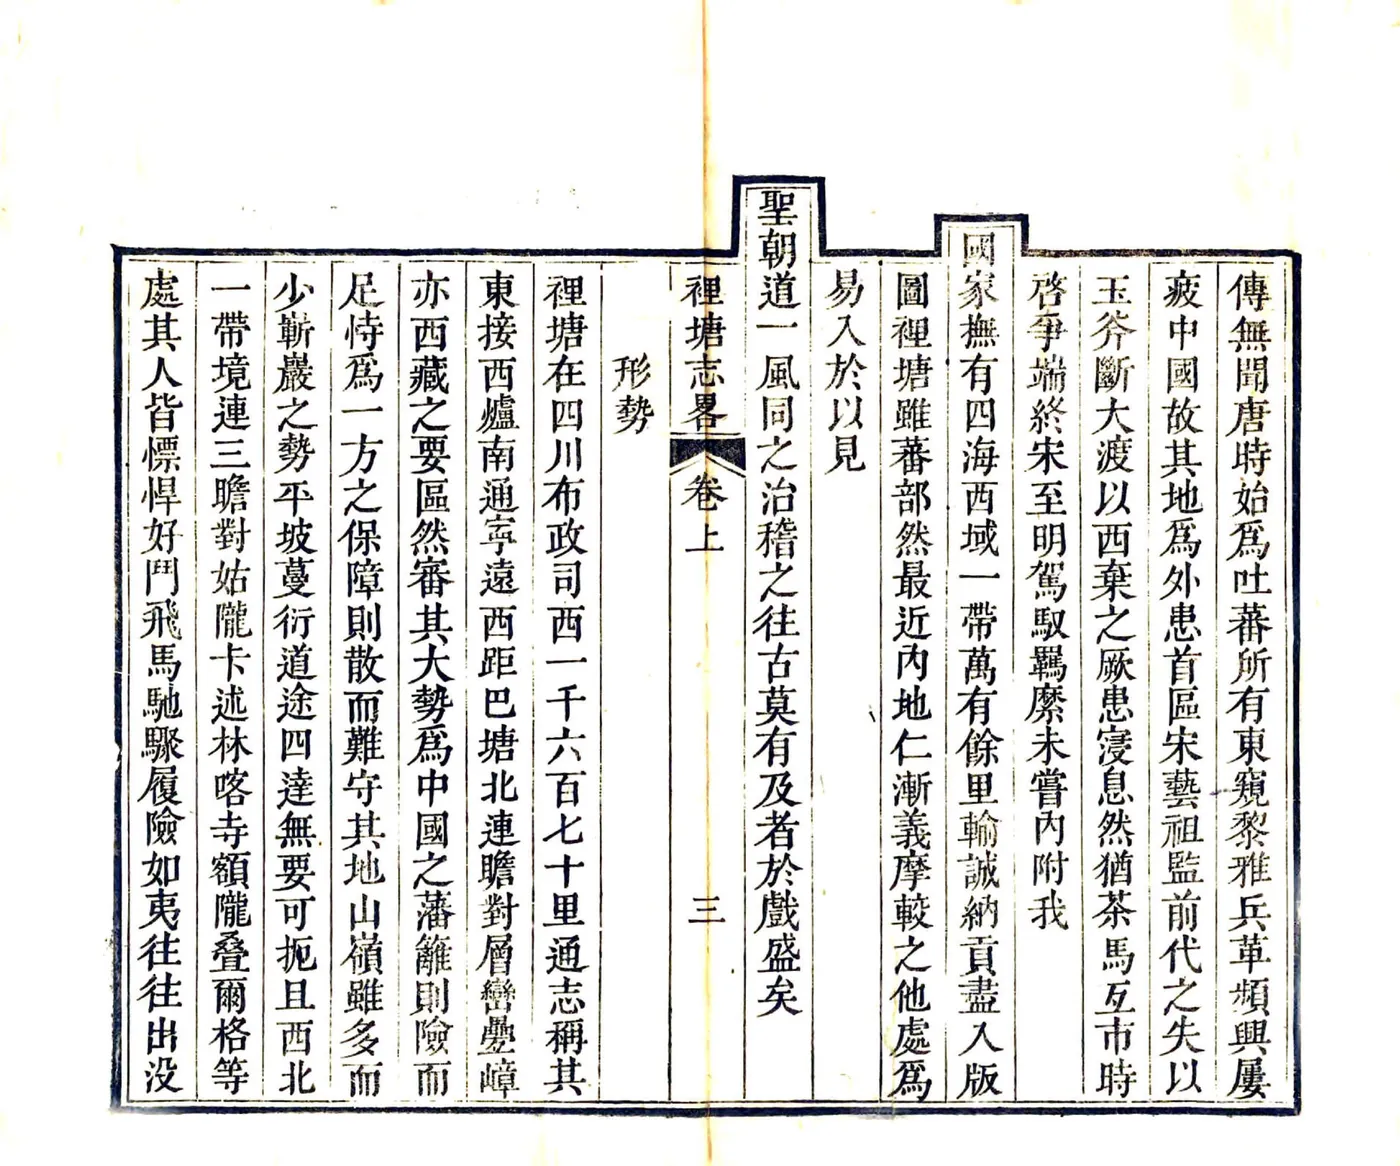 傳無聞唐時始爲吐蕃所有東窺黎雅兵革頻興屢
疲中國故其地爲外患首區宋藝祖監前代之失以
玉斧斷大渡以西棄之厥患寖息然猶茶馬互市時
啓爭端終宋至明駕馭羈縻未嘗內附我
國家撫有四海西域一帶萬有餘里輸誠納貢盡入版
圖裡塘雖蕃部然最近內地仁漸義摩較之他處爲
易入於以見
聖朝道一風同之治稽之往古莫有及者於戲盛矣
裡塘志畧 卷上 三
形勢
裡塘在四川布政司西一千六百七十里通志稱其
東接西爐南通寧遠西距巴塘北連瞻對層巒疊嶂
亦西藏之要區然審其大勢爲中國之藩籬則險而
足恃爲一方之保障則散而難守其地山嶺雖多而
少嶄巖之勢平坡蔓衍道途四達無要可扼且西北
一帶境連三瞻對姑隴卡述林喀寺額隴叠爾格等
處其人皆慓悍好鬥飛馬馳驟履險如夷往往出没